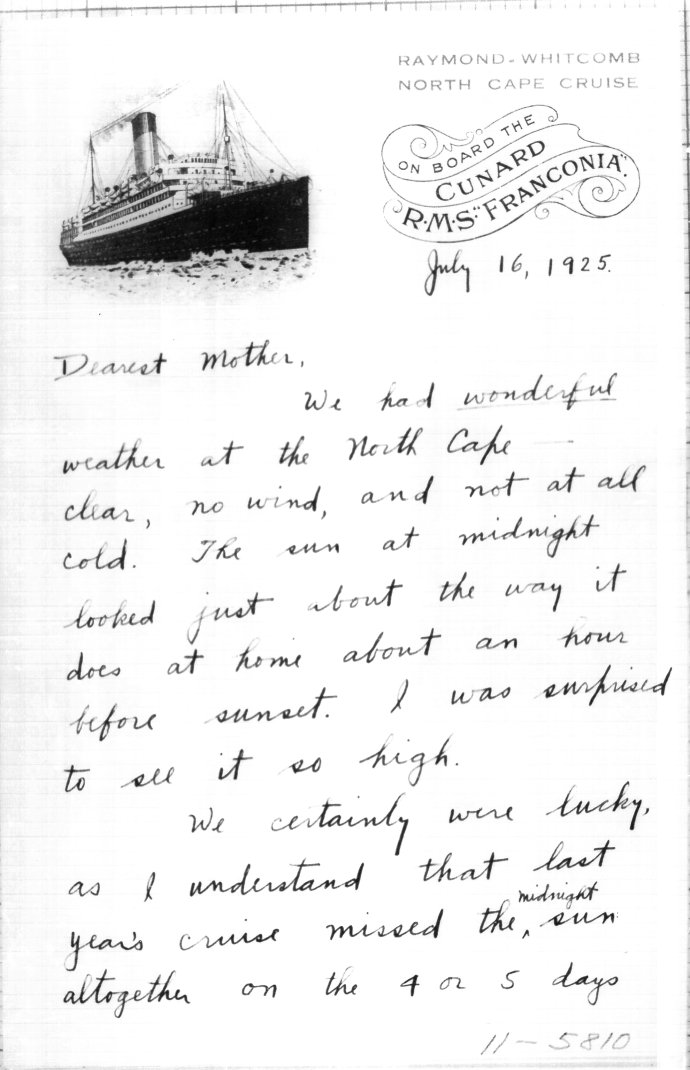 RAYMOND-WHITCOMB
NORTH CAPE CRUISE
ON BOARD THE
CUNARD
R·M·S·"FRANCONIA".
July 16, 1925.
Dearest Mother,
We had wonderful
weather at the North Cape —
clear, no wind, and not at all
cold. The sun at midnight
looked just about the way it
does at home about an hour
before sunset. I was surprised
to see it so high.
We certainly were lucky,
as I understand that last
year's cruise missed the midnight sun
altogether on the 4 or 5 days
11-5810